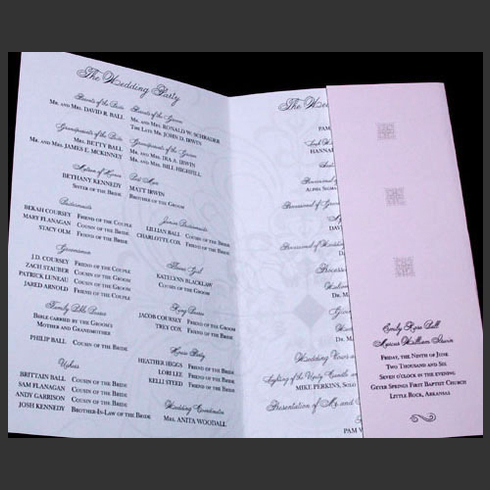 The Wedding Party
Parents of the Bride
Mr. and Mrs. David R. Ball
Parents of the Groom
Mr. and Mrs. Ronald W. Schrader
The Late Mr. John D. Irwin
Grandparents of the Bride
Mrs. Betty Ball
Mr. and Mrs. James E. McKinney
Grandparents of the Groom
Mr. and Mrs. Ira A. Irwin
Mr. and Mrs. Bill Hightill
Matron of Honor
Bethany Kennedy
Sister of the Bride
Best Man
Matt Irwin
Brother of the Groom
Bridesmaids
Bekah Coursey Friend of the Couple
Mary Flanagan Cousin of the Bride
Stacy Olm Friend of the Bride
Junior Bridesmaids
Lillian Ball Cousin of the Bride
Charlotte Cox Cousin of the Bride
Groomsmen
J.D. Coursey Friend of the Couple
Zach Stauber Cousin of the Groom
Patrick Leniau Cousin of the Groom
Jared Arnold Friend of the Couple
Flower Girl
Katelynn Blacklaw
Cousin of the Groom
Family Bible Bearer
Bible carried by the Groom's
Mother and Grandmother
Philip Ball Cousin of the Bride
Ring Bearer
Jacob Coursey Friend of the Couple
Trey Cox Cousin of the Bride
Ushers
Brittain Ball Cousin of the Bride
Sam Flanagan Cousin of the Bride
Andy Garrison Cousin of the Bride
Josh Kennedy Brother-in-Law of the Bride
House Party
Heather Higgs Friend of the Bride
Lori Lee Friend of the Bride
Kelli Steed Friend of the Bride
Wedding Coordinator
Mrs. Anita Woodall
The
Pam
Hannah
Processional of
Processional of
Processional of Wedding
Processional
Dr. Ma
Dr. M
Wedding Vows
Lighting of the Unity Candle
Mike Perkins, Solo
Presentation of Mr. and
Dr.
Pam
Emily Rose Ball
Marcus William Irwin
Friday, the Ninth of June
Two Thousand and Six
Seven o'clock in the evening
Geyer Springs First Baptist Church
Little Rock, Arkansas